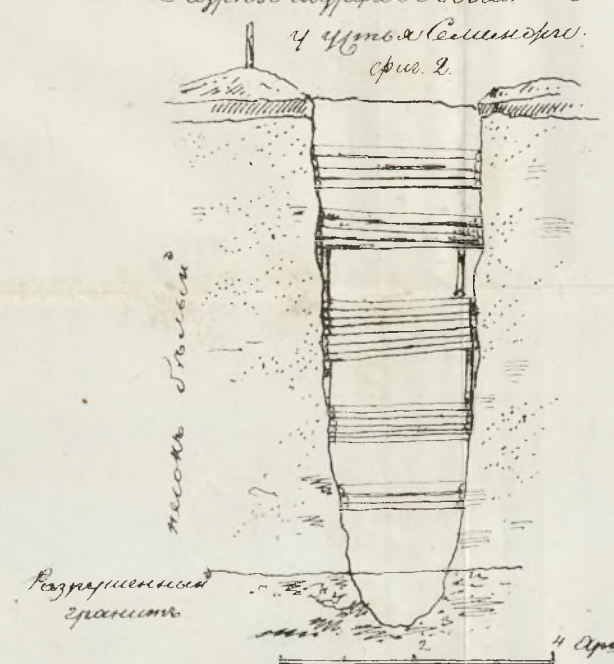 у устья Семинорки.
фиг. 2.
песокъ бѣлый
Разрушенный
гранитъ
2
4 Арш